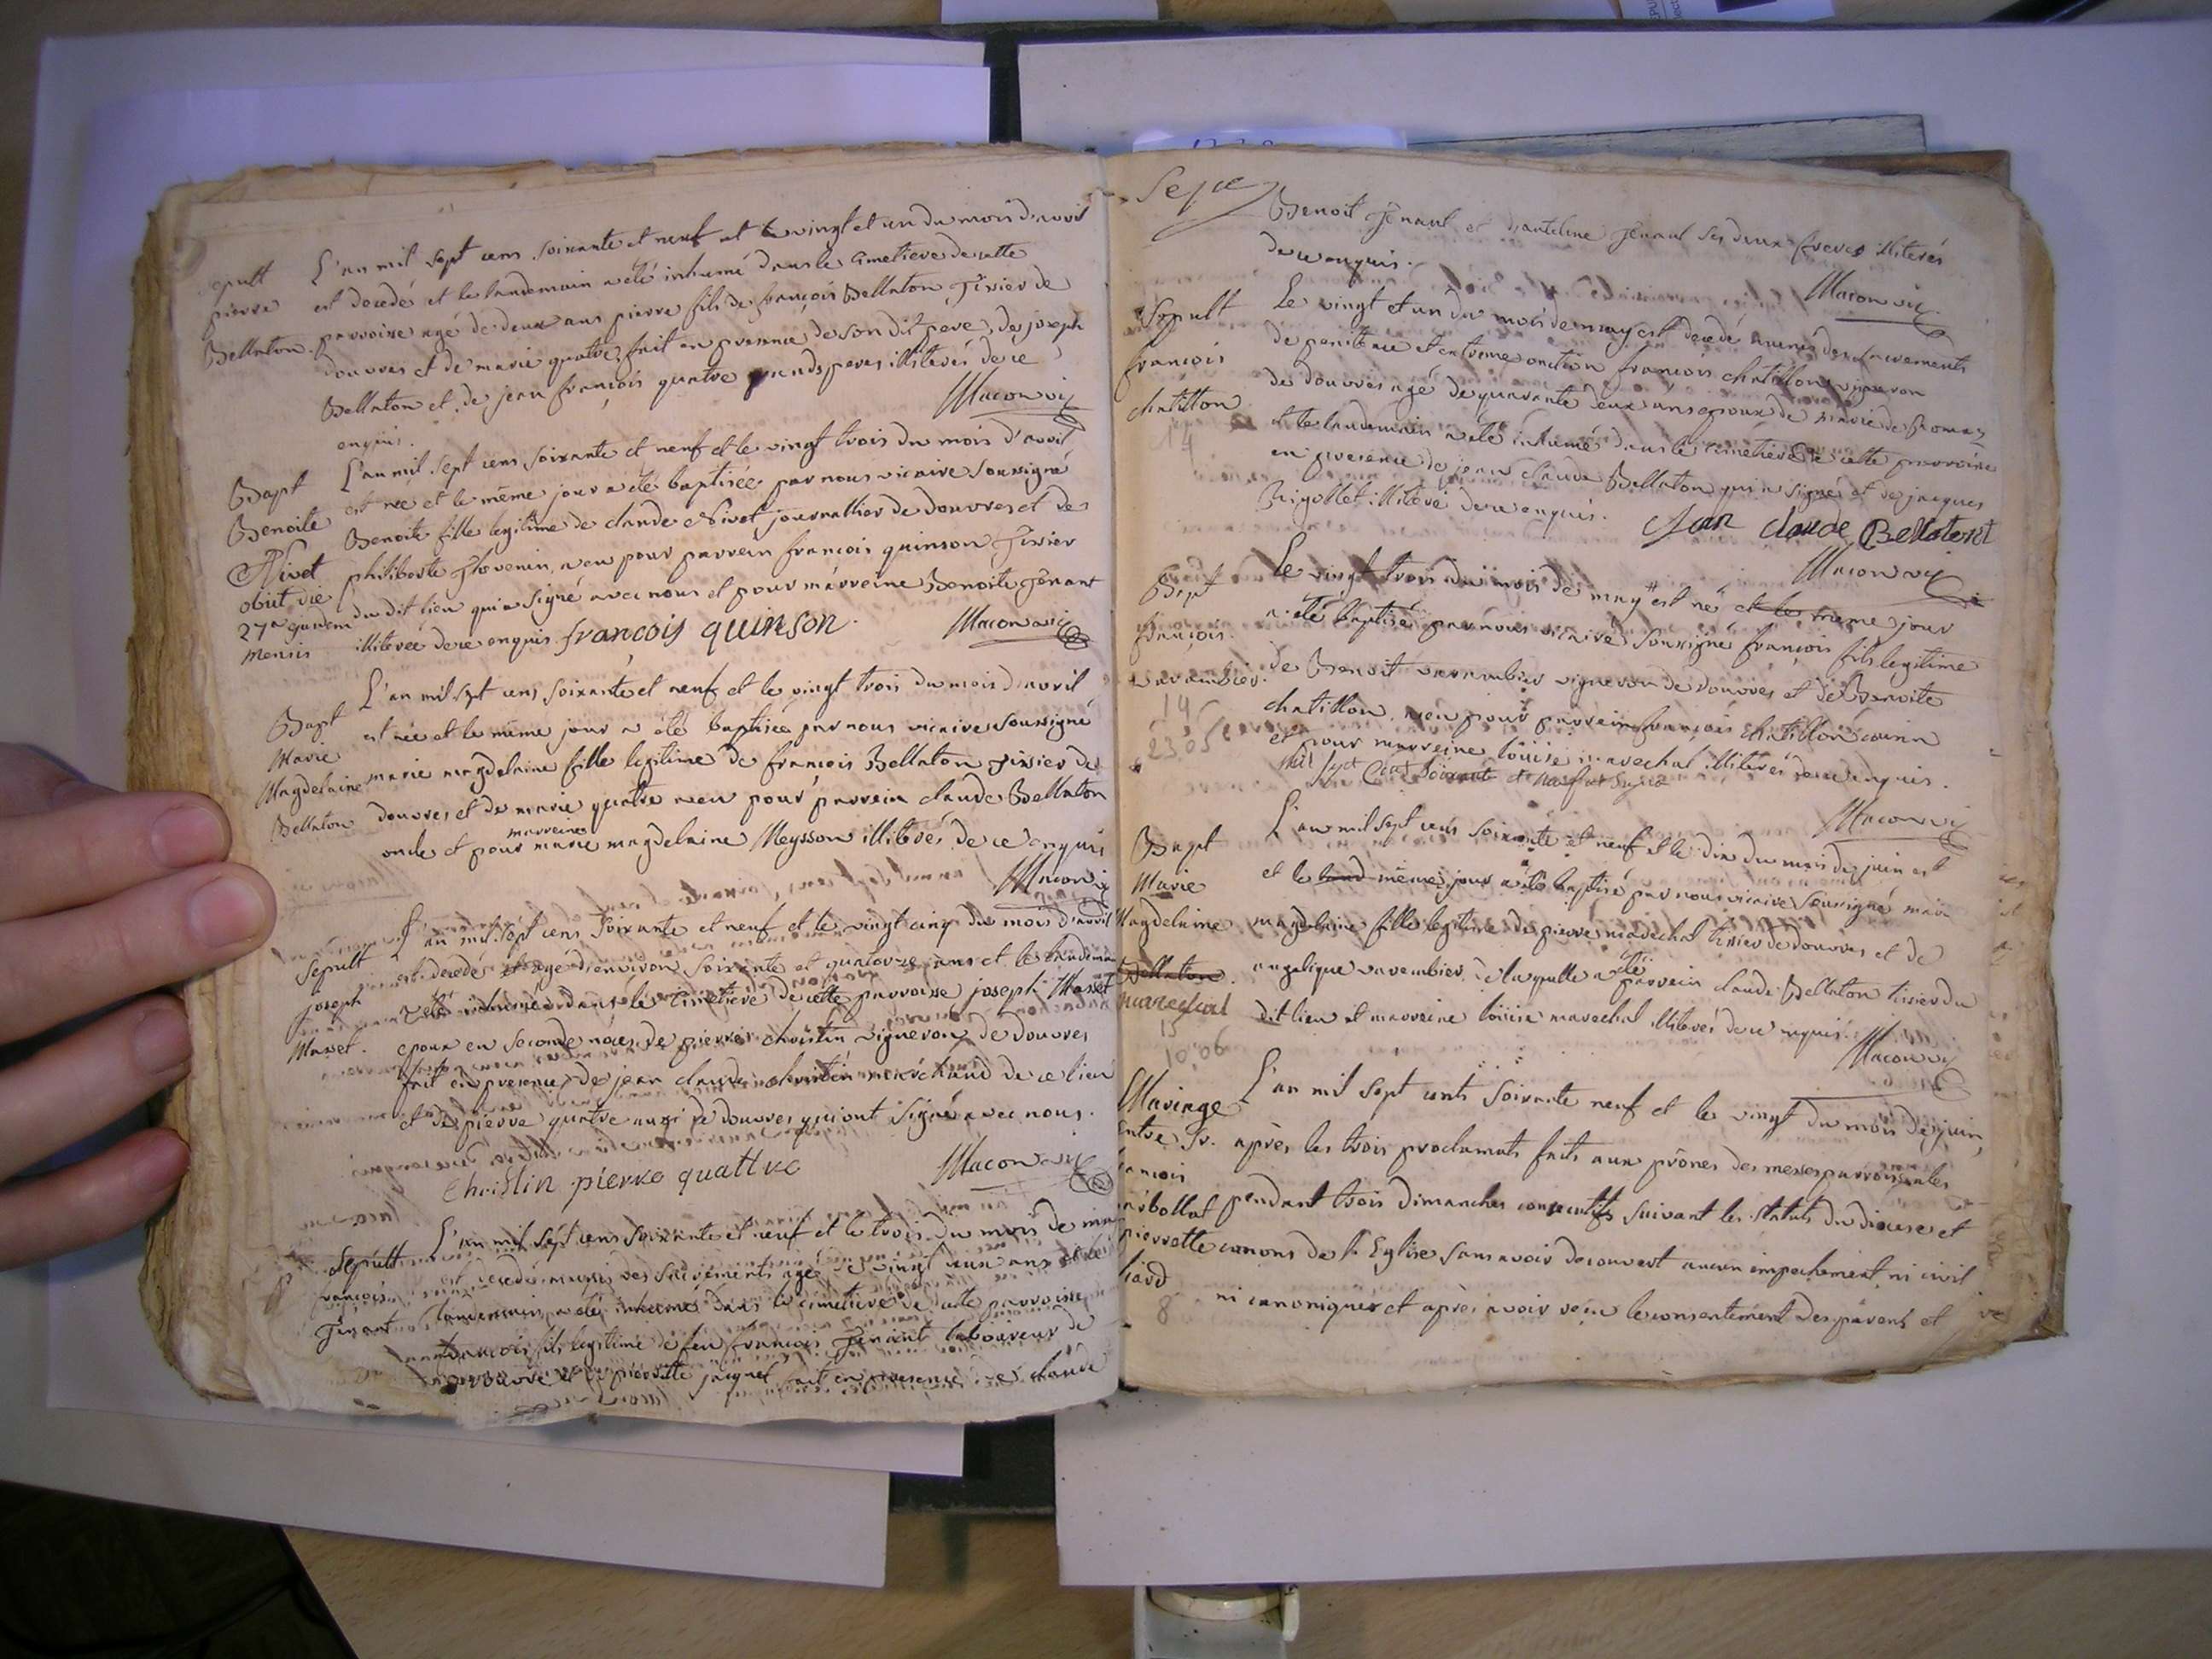 sepult
pierre
Bellaton.
L'an mil sept cens soixante et neuf et le vingt et un du mois d'avril
est decedé et le landemain a été inhumé dans le cimetiere de cette
parroisse agé de deux ans pierre fils de françois Bellaton tixier de
douvres et de marie quatre, fait en presence de son dit pere, de joseph
Bellaton et de jean françois quatre grands peres illiterés de ce
enquis.
Macon vic
Bapt
Benoite
Nivet
obiit die
27a ejusdem
mensis
L'an mil sept cens soixante et neuf et le vingt trois du mois d'avril
est née et le même jour a été baptisée par nous vicaire soussigné
Benoite fille legitime de claude Nivet journallier de douvres et de
philiberte thevenin, a eu pour parrein françois quinson tixier
du dit lieu qui a signé avec nous et pour marreine Benoite Jenant
illiterée de ce enquis. françois quinson.
Macon vic
Bapt
Marie
Magdelaine
Bellaton
L'an mil sept cens soixante et neuf et le vingt trois du mois d'avril
est née et le même jour a été baptisée par nous vicaire soussigné
marie magdelaine fille legitime de françois Bellaton tixier de
douvres et de marie quatre a eu pour parrein claude Bellaton
oncle et pour marreine marie magdelaine Meysson illiterés de ce enquis
Macon vic
Sepult
joseph
Masset.
L'an mil sept cens soixante et neuf et le vingt cinq du mois d'avril
est decedé et agé d'environ soixante et quatorze ans et le landemain
a été inhumé dans le cimetiere de cette parroisse joseph Masset
epoux en seconde noces de pierrette christin vigneron de douvres
fait en presence de jean claude christin marchand de ce lieu
et de pierre quatre aussi de douvres qui ont signé avec nous.
Christin pierre quattre
Macon vic
Sepult
françois
Jenant
L'an mil sept cens soixante et neuf et le trois du mois de may
est decedé muni des sacrements agé de vingt deux ans et le
landemain a été inhumé dans le cimetiere de cette parroisse
françois fils legitime de feu françois Jenant laboureur de
douvre et de pierrette jacquet fait en presence de claude
Benoit Jenant et d'anteline Jenant ses deux freres illiterés
de ce enquis.
Macon vic
Sepult
françois
chatillon
14
Le vingt et un du mois de may est decedé muni des sacrements
de penitence et extreme onction françois chatillon vigneron
de douvres agé de quarante deux ans epoux de marie de Romaz
et le landemain a été inhumé dans le cimetiere de cette parroisse
en presence de jean claude Bellaton qui a signé et de jacques
Rigollet illiteré de ce enquis. Jean claude Bellatont
Macon vic
Bapt
françois
varambier.
14
23.05
Le vingt trois du mois de may est né et le meme jour
a été baptisé par nous vicaire soussigné françois fils legitime
de Benoit varambier vigneron de douvres et de Benoite
chatillon, a eu pour parrein françois chatillon cousin
et pour marreine loüise marechal illiterés de ce enquis.
mil sept Cent Soixant et neuf
Macon vic
Bapt
Marie
Magdelaine
Bellaton.
marechal
15
10.06
L'an mil sept cens soixante et neuf et le dix du mois de juin est
et le même jour a été baptisé par nous vicaire soussigné marie
magdelaine fille legitime de pierre marechal tixier de douvres et de
angelique varembier, à laquelle a été parrein claude Bellaton tixier du
dit lieu et marreine loüise marechal illiterés de ce enquis.
Macon vic
Mariage
entre Sr.
françois
pierrette
8
L'an mil sept cents soixante neuf et le vingt du mois de juin,
après les trois proclamats faits aux prônes des messes parroissiales
pendant trois dimanches consecutifs suivant les statuts du diocese et
canons de l'Eglise sans avoir decouvert aucun empechement ni civil
ni canonique et après avoir reçu le consentement des parents et